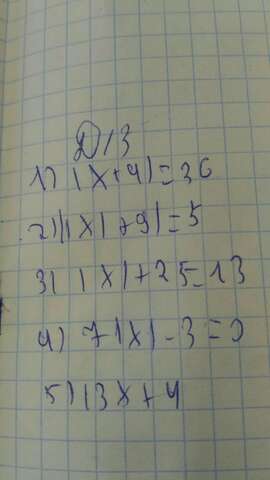 Д/З
1) |x+4|=36
2) ||x|+9|=5
3) |x|+25=13
4) 7|x|-3=0
5) |3x+4